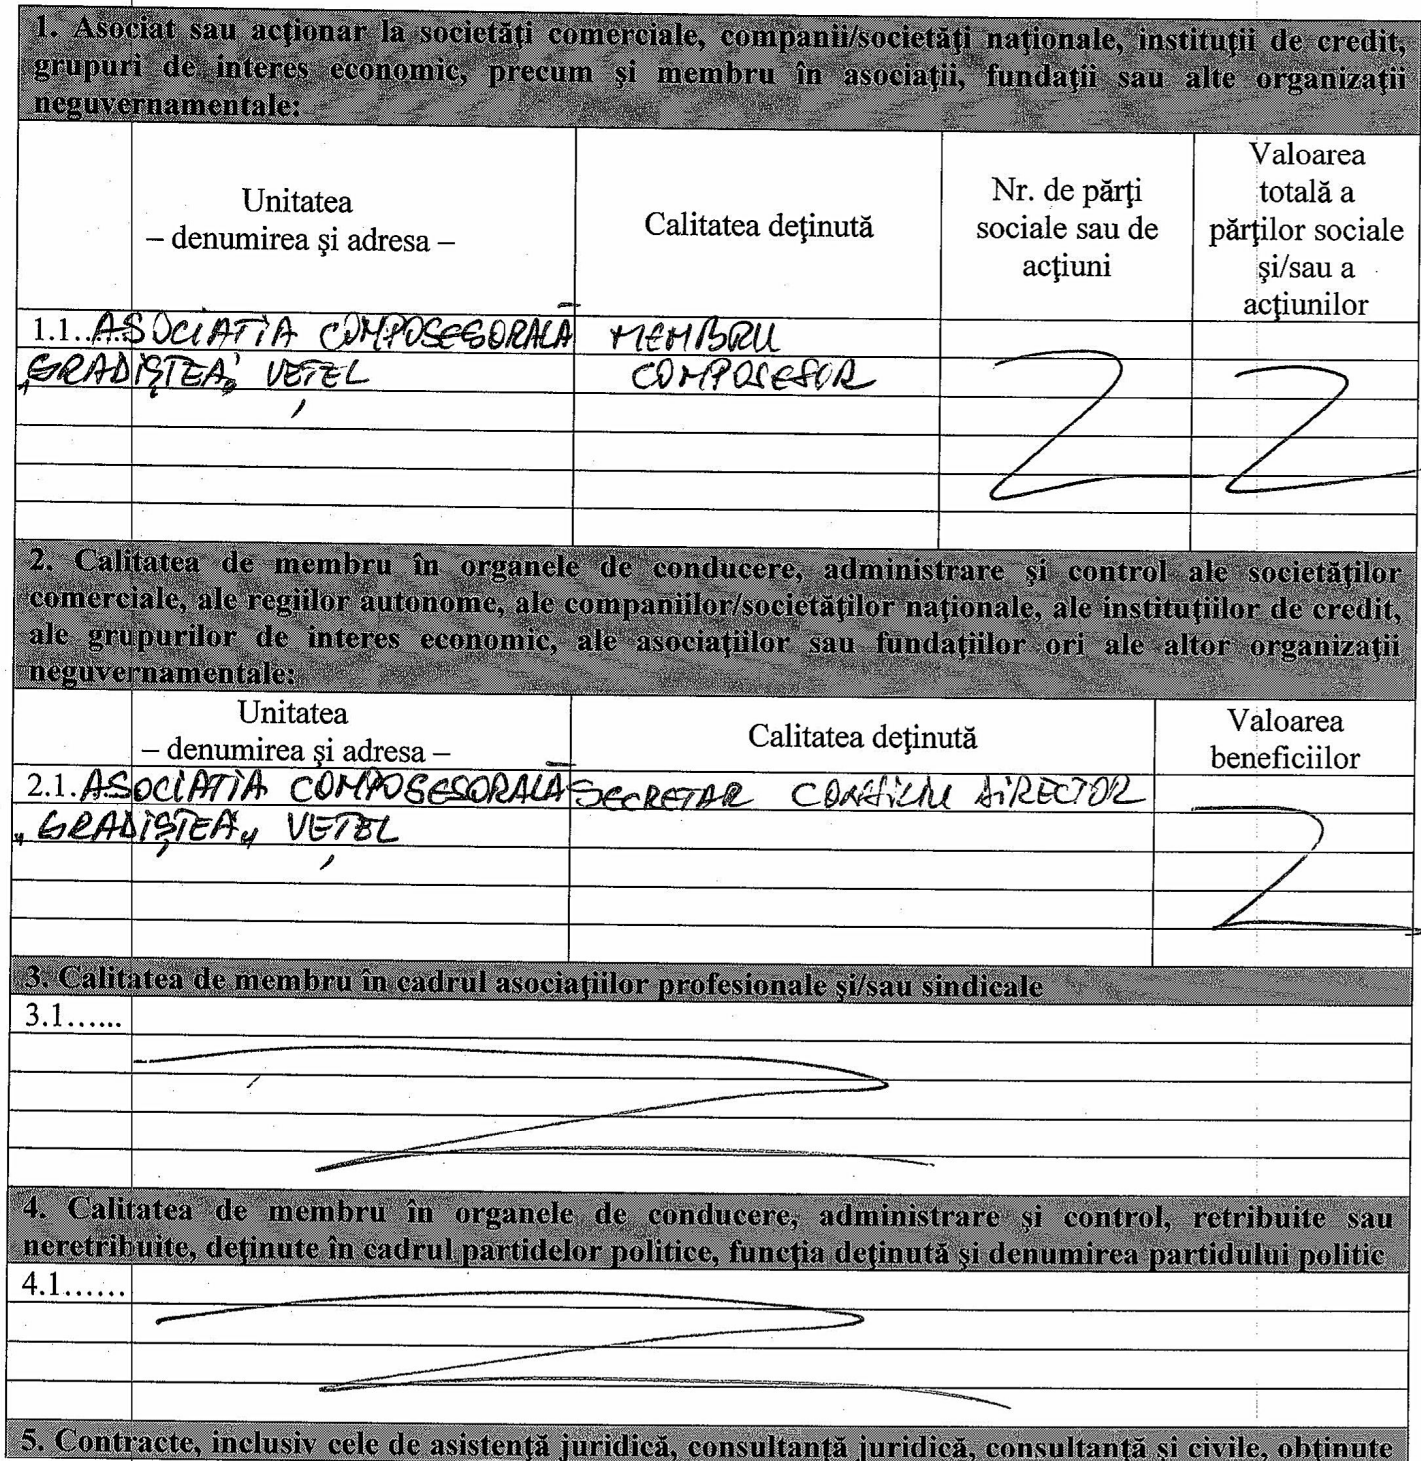 1. Asociat sau acţionar la societăţi comerciale, companii/societăţi naţionale, instituţii de credit,
grupuri de interes economic, precum şi membru în asociaţii, fundaţii sau alte organizaţii
neguvernamentale:
Unitatea
– denumirea şi adresa –
Calitatea deţinută
Nr. de părţi
sociale sau de
acţiuni
Valoarea
totală a
părţilor sociale
şi/sau a
acţiunilor
1.1. ASOCIATIA COMPOSESORALĀ MEMBRU
„GRADIŞTEA„ VEŢEL COMPOSESOR
2. Calitatea de membru în organele de conducere, administrare şi control ale societăţilor
comerciale, ale regiilor autonome, ale companiilor/societăţilor naţionale, ale instituţiilor de credit,
ale grupurilor de interes economic, ale asociaţiilor sau fundaţiilor ori ale altor organizaţii
neguvernamentale:
Unitatea
– denumirea şi adresa –
Calitatea deţinută
Valoarea
beneficiilor
2.1. ASOCIATIA COMPOSESORALĀ SECRETAR CONSILIU DIRECTOR
„GRADIŞTEA„ VEŢEL
3. Calitatea de membru în cadrul asociaţiilor profesionale şi/sau sindicale
3.1......
4. Calitatea de membru în organele de conducere, administrare şi control, retribuite sau
neretribuite, deţinute în cadrul partidelor politice, funcţia deţinută şi denumirea partidului politic
4.1......
5. Contracte, inclusiv cele de asistenţă juridică, consultanţă juridică, consultanţă şi civile, obţinute